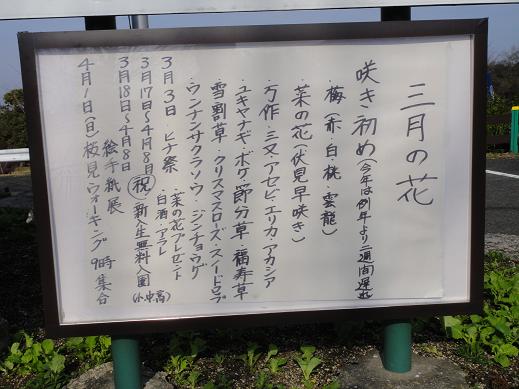 三月の花
咲き初め(今年は例年より二週間遅れ)
・梅(赤・白・桃・雲龍)
・菜の花(伏見早咲き)
・万作・三又・アセビ・エリカ・アカシア
・ユキヤナギ・ボケ・節分草・福寿草
・雪割草・クリスマスローズ・スノードロップ
・ウンナンサクラソウ・ジンチョウゲ
3月3日 ヒナ祭 ・菜の花プレゼント
・白酒・アラレ
3月17日〜4月8日 祝・新入生無料入園(小中高)
3月18日〜4月8日 絵手紙展
4月1日(日)桜見ウォーキング 9時集合